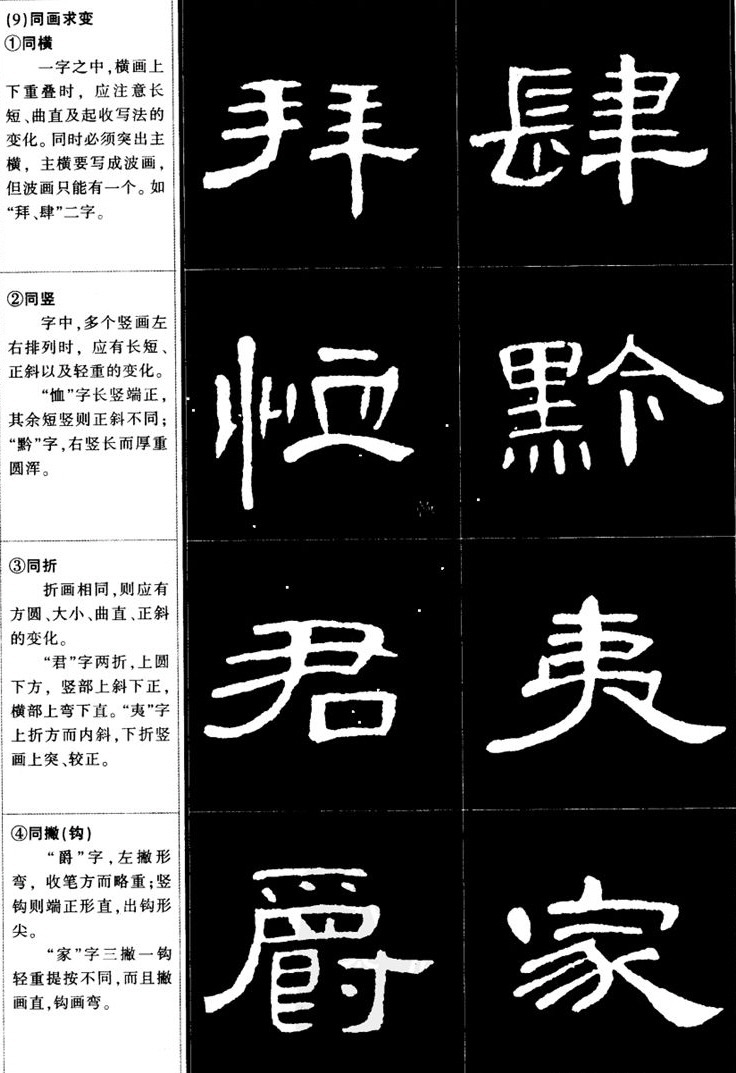 (9)同画求变
①同横
一字之中,横画上
下重叠时，应注意长
短、曲直及起收写法的
变化。同时必须突出主
横，主横要写成波画，
但波画只能有一个。如
“拜、肆”二字。
拜 肆
②同竖
字中,多个竖画左
右排列时，应有长短、
正斜以及轻重的变化。
“恤”字长竖端正,
其余短竖则正斜不同;
“黔”字,右竖长而厚重
圆浑。
恤 黔
③同折
折画相同,则应有
方圆、大小、曲直、正斜
的变化。
“君”字两折,上圆
下方，竖部上斜下正,
横部上弯下直。“夷”字
上折方而内斜,下折竖
画上突、较正。
君 夷
④同撇(钩)
“爵”字,左撇形
弯，收笔方而略重;竖
钩则端正形直,出钩形
尖。
“家”字三撇一钩
轻重提按不同,而且撇
画直,钩画弯。
爵 家